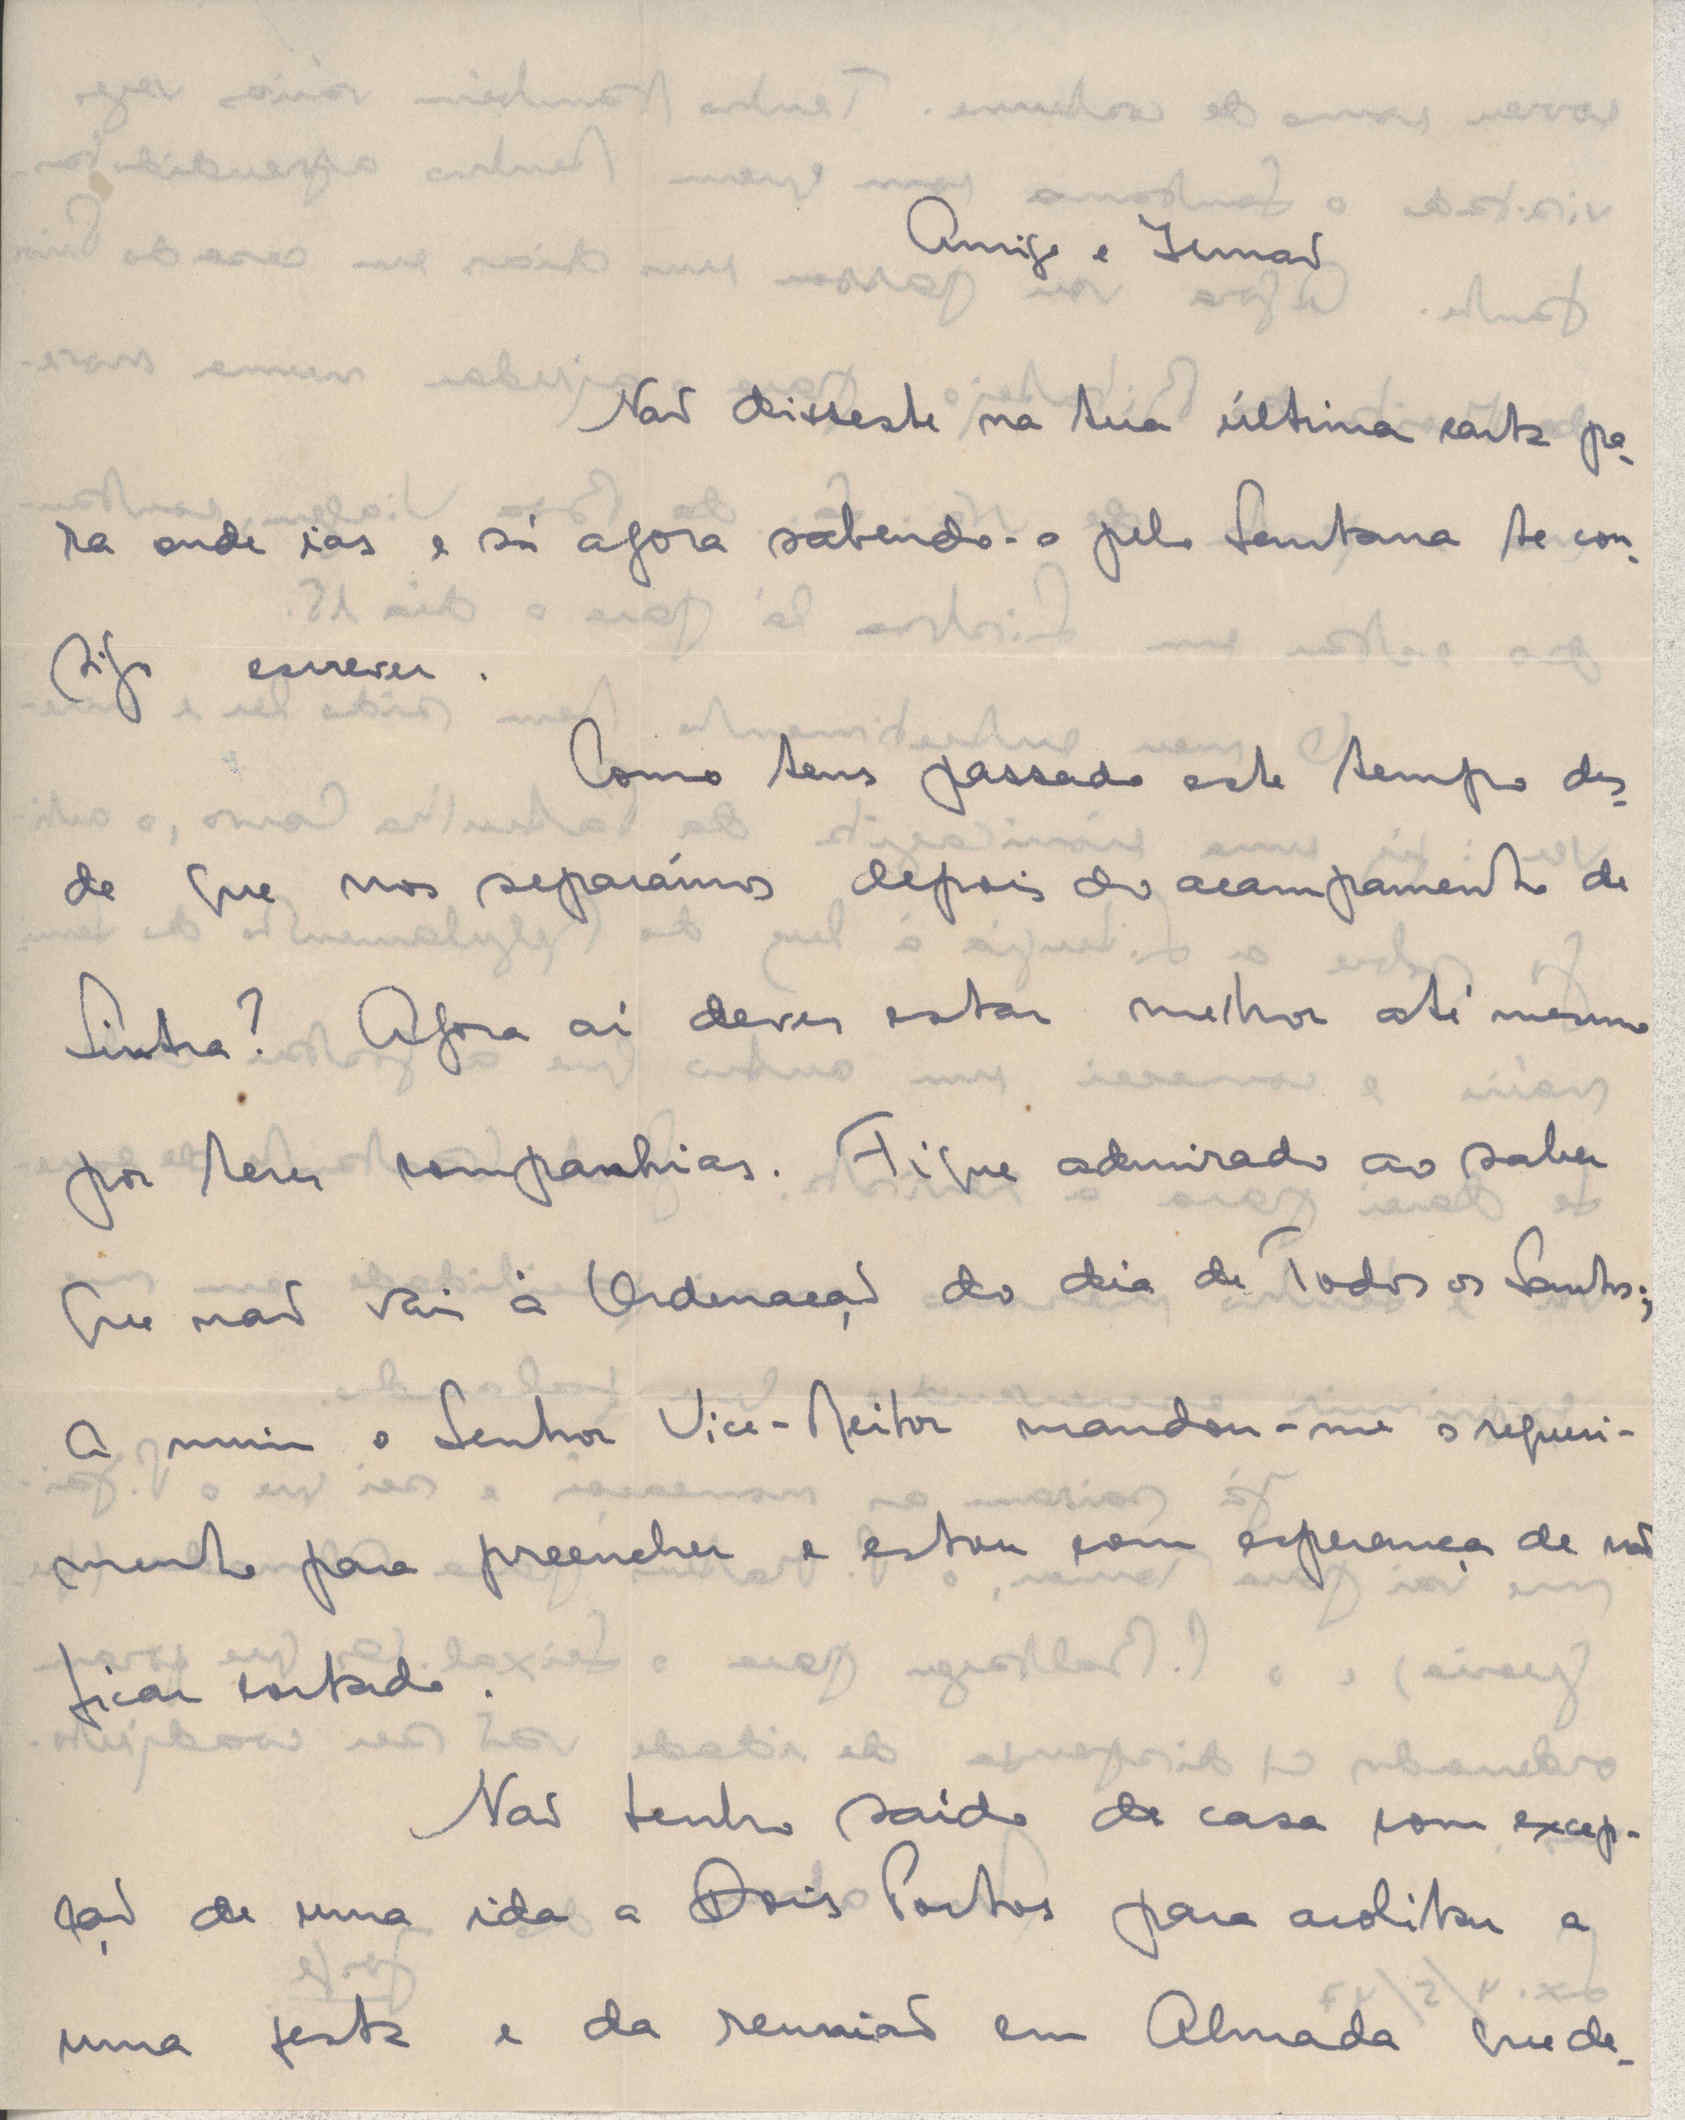 Amigo e Irmão
Não disseste na tua última carta pa-
ra onde ias e só agora sabendo-o pelo Santana te con-
sigo escrever.
Como tens passado este tempo des-
de que nos separámos depois do acampamento de
Sintra? Agora aí deves estar melhor até mesmo
por teres companhias. Fiquei admirado ao saber
que não vais à Ordenação do dia de Todos os Santos;
a mim o Senhor Vice-Reitor mandou-me o requeri-
mento para preencher e estou com esperança de não
ficar cortado.
Não tenho saído de casa com excep-
ção de uma ida a Dois Portos para acolitar a
uma festa e da reunião em Almada que de-